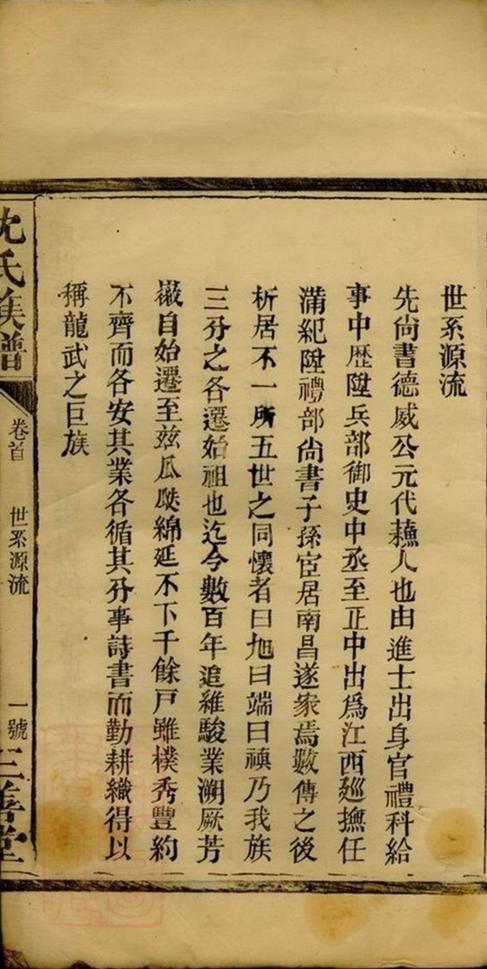 世系源流
先尚書德威公元代蘓人也由進士出身官禮科給
事中歷陞兵部御史中丞至正中出為江西廵撫任
滿紀陞禮部尚書子孫宦居南昌遂家焉數傳之後
析居不一所五世之同懷者曰地曰端曰禎乃我族
三分之各遷始祖也迄今數百年追維駿業溯厥芳
徽自始遷至玆瓜瓞綿延不下千餘戸雖樸秀豐約
不齊而各安其業各循其分事詩書而勤耕織得以
稱龍武之巨族
沈氏族譜
卷首
世系源流
一號
三善堂